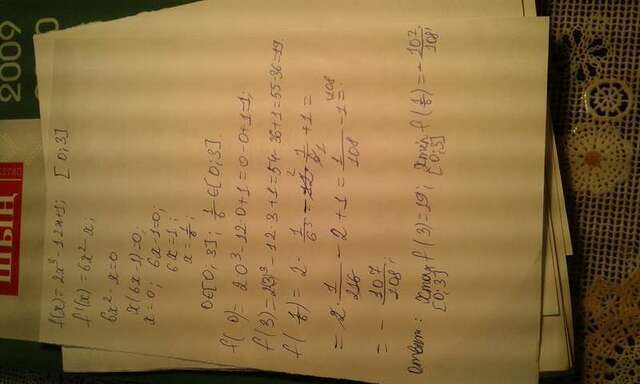 f(x)=2x³-12x+1; [0;3]
f'(x)=6x²-x;
6x²-x=0
x(6x-1)=0;
x=0; 6x-1=0;
6x=1;
x=1/6;
0∈[0;3]; 1/6∈[0;3].
f(0)=2·0³-12·0+1=0-0+1=1;
f(3)=2·3³-12·3+1=54-36+1=55-36=19.
f(1/6)=2·1/6³-12·1/6+1=
=2·1/216-2+1=1/108-1=
=-107/108;
Ответ: xmax f(3)=19; xmin f(1/6)=-107/108;
[0;3] [0;3]
2009
ШЫҢ